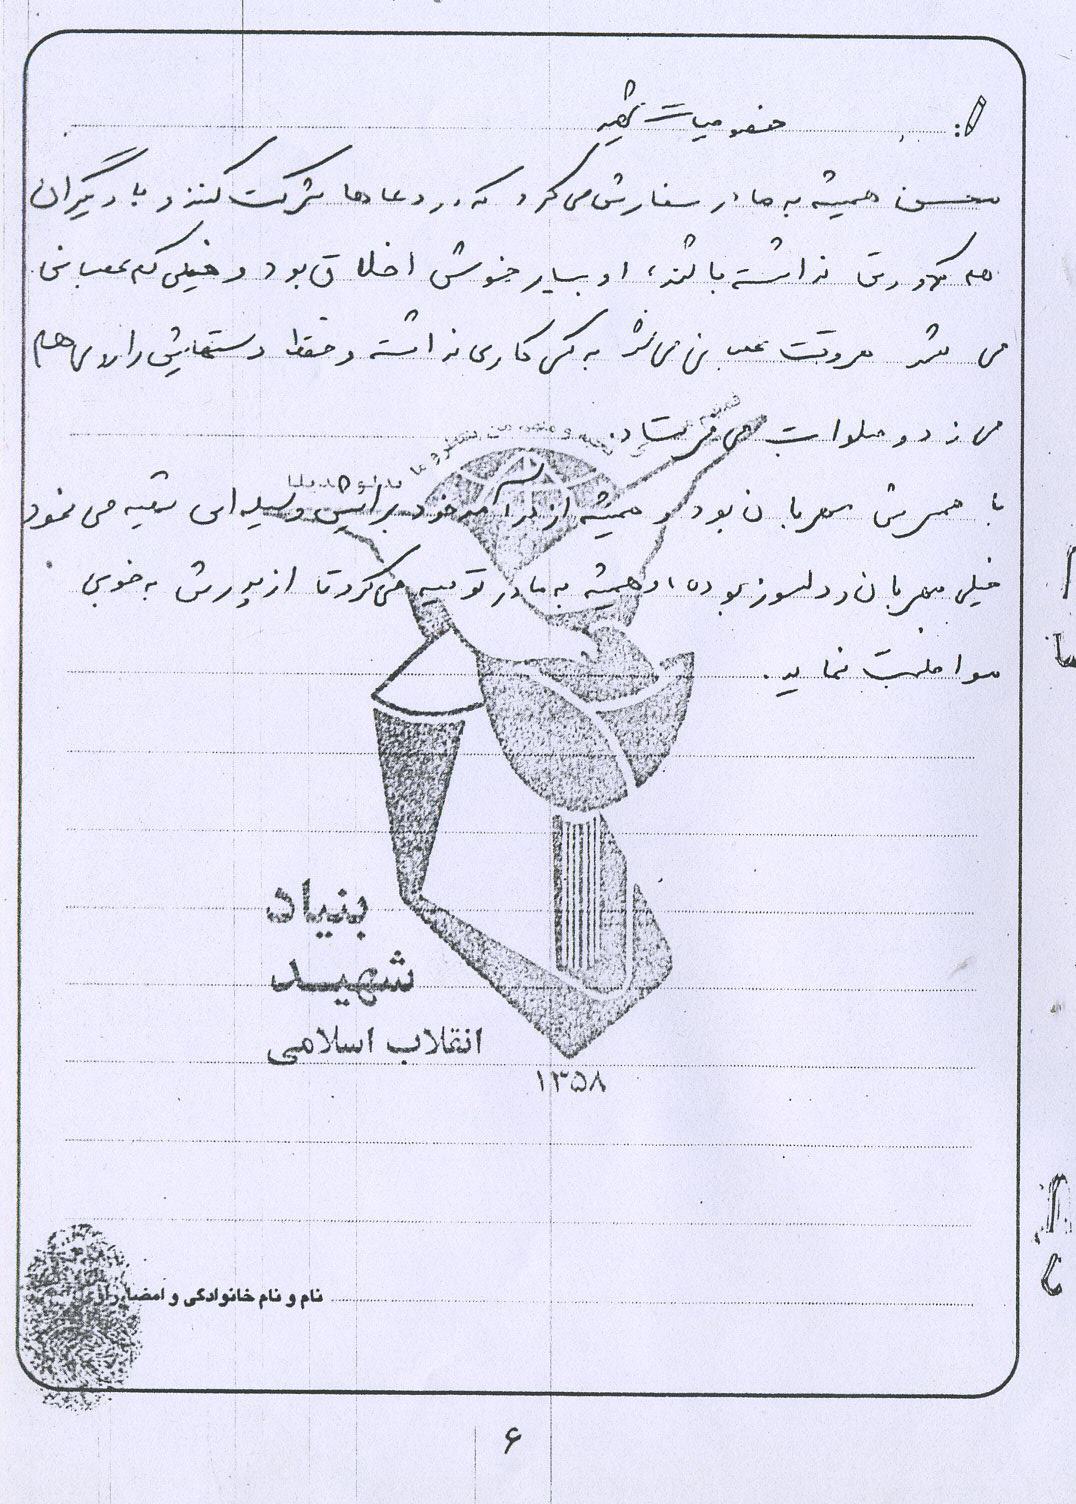 خصوصیات شهید
محسن همیشه به مادر سفارش می کرد که در دعاها شرکت کنند و با دیگران
هم کدورتی نداشته باشند، او بسیار خوش اخلاق بود و خیلی کم عصبانی
می شد هر وقت عصبانی می شد به کسی کاری نداشته و فقط دستهایش را به هم
می زد و صلوات می فرستاد.
با همسرش مهربان بود و همیشه از درآمد خود برایش وسیله ای تهیه می نمود
خیلی مهربان و دلسوز بوده او همیشه به مادر توصیه می کرد تا از پدرش به خوبی
مواظبت نماید.
بنیاد
شهید
انقلاب اسلامی
۱۳۵۸
نام و نام خانوادگی و امضا راوی
۶